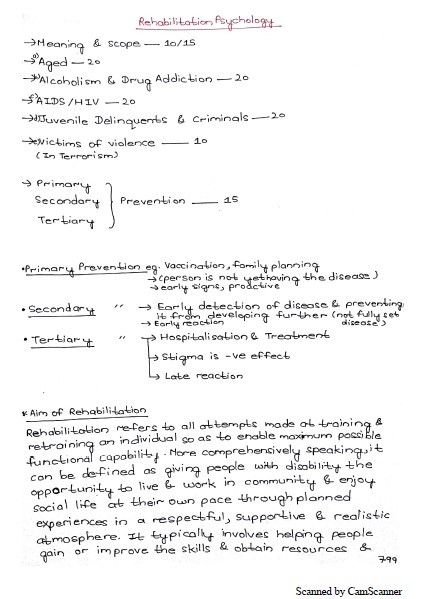 Rehabilitation Psychology
→ Meaning & scope — 10/15
→ Aged — 20
→ Alcoholism & Drug Addiction — 20
→ AIDS/HIV — 20
→ Juvenile Delinquents & Criminals — 20
→ Victims of violence — 10
(In Terrorism)
→ Primary
Secondary } Prevention — 15
Tertiary
• Primary Prevention eg. Vaccination, family planning
→ (person is not yet having the disease)
→ early signs, proactive
• Secondary " → Early detection of disease & preventing
it from developing further (not fully set
→ Early reaction disease)
• Tertiary " → Hospitalisation & Treatment
→ Stigma is -ve effect
→ Late reaction
* Aim of Rehabilitation
Rehabilitation refers to all attempts made at training &
retraining an individual so as to enable maximum possible
functional capability. More comprehensively speaking, it
can be defined as giving people with disability the
opportunity to live & work in community & enjoy
social life at their own pace through planned
experiences in a respectful, supportive & realistic
atmosphere. It typically involves helping people
gain or improve the skills & obtain resources &
799
Scanned by CamScanner